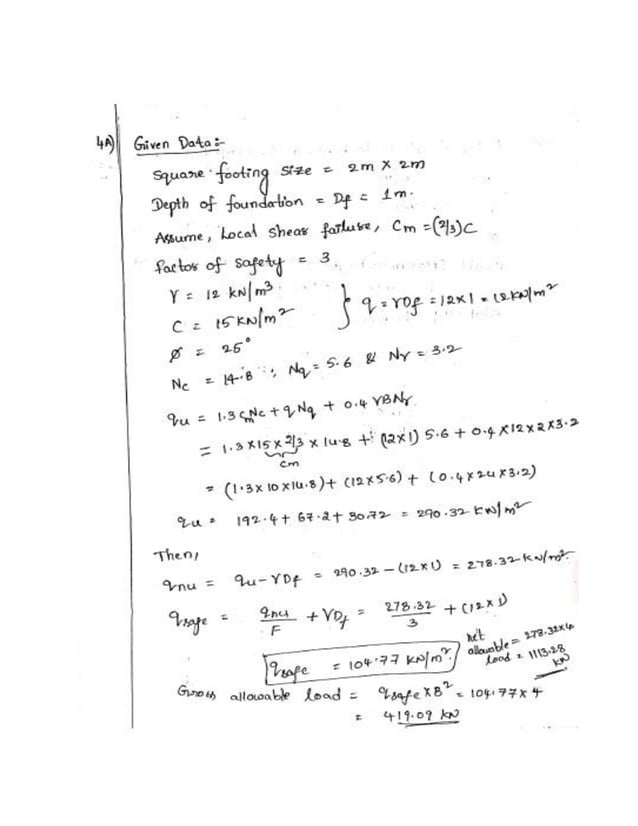 4A) Given Data:-
Square footing size = 2m × 2m
Depth of foundation = Df = 1m.
Assume, Local Shear failure, Cm = (2/3)C
factor of safety = 3
γ = 12 kN/m³
C = 15 KN/m² } q = γDf = 12×1 = 12 KN/m²
ø = 25°
Nc = 14.8 ; Nq = 5.6 & Nγ = 3.2
qu = 1.3 CmNc + qNq + 0.4 γBNγ
= 1.3×15×2/3 × 14.8 + (12×1) 5.6 + 0.4×12×2×3.2
Cm
= (1.3×10×14.8) + (12×5.6) + (0.4×24×3.2)
qu = 192.4 + 67.2 + 30.72 = 290.32 KN/m²
Then,
qnu = qu - γDf = 290.32 - (12×1) = 278.32 kN/m².
qsafe = qnu/F + γDf = 278.32/3 + (12×1)
qsafe = 104.77 KN/m².
net allowable load = 278.32×4 = 1113.28 KN
Gross allowable load = qsafe × B² = 104.77 × 4
= 419.09 KN